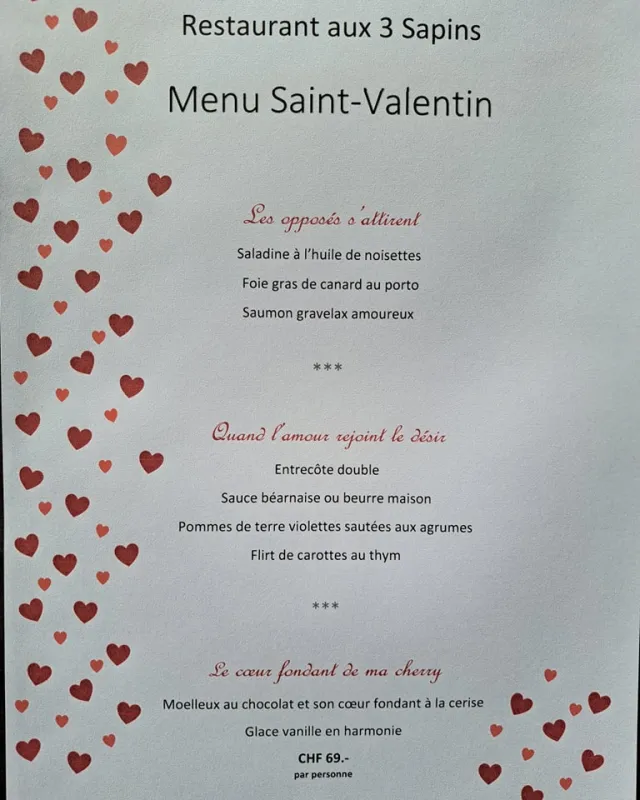 Restaurant aux 3 Sapins
Menu Saint-Valentin
Les opposés s'attirent
Saladine à l'huile de noisettes
Foie gras de canard au porto
Saumon gravelax amoureux
***
Quand l'amour rejoint le désir
Entrecôte double
Sauce béarnaise ou beurre maison
Pommes de terre violettes sautées aux agrumes
Flirt de carottes au thym
***
Le cœur fondant de ma cherry
Moelleux au chocolat et son cœur fondant à la cerise
Glace vanille en harmonie
CHF 69.-
par personne